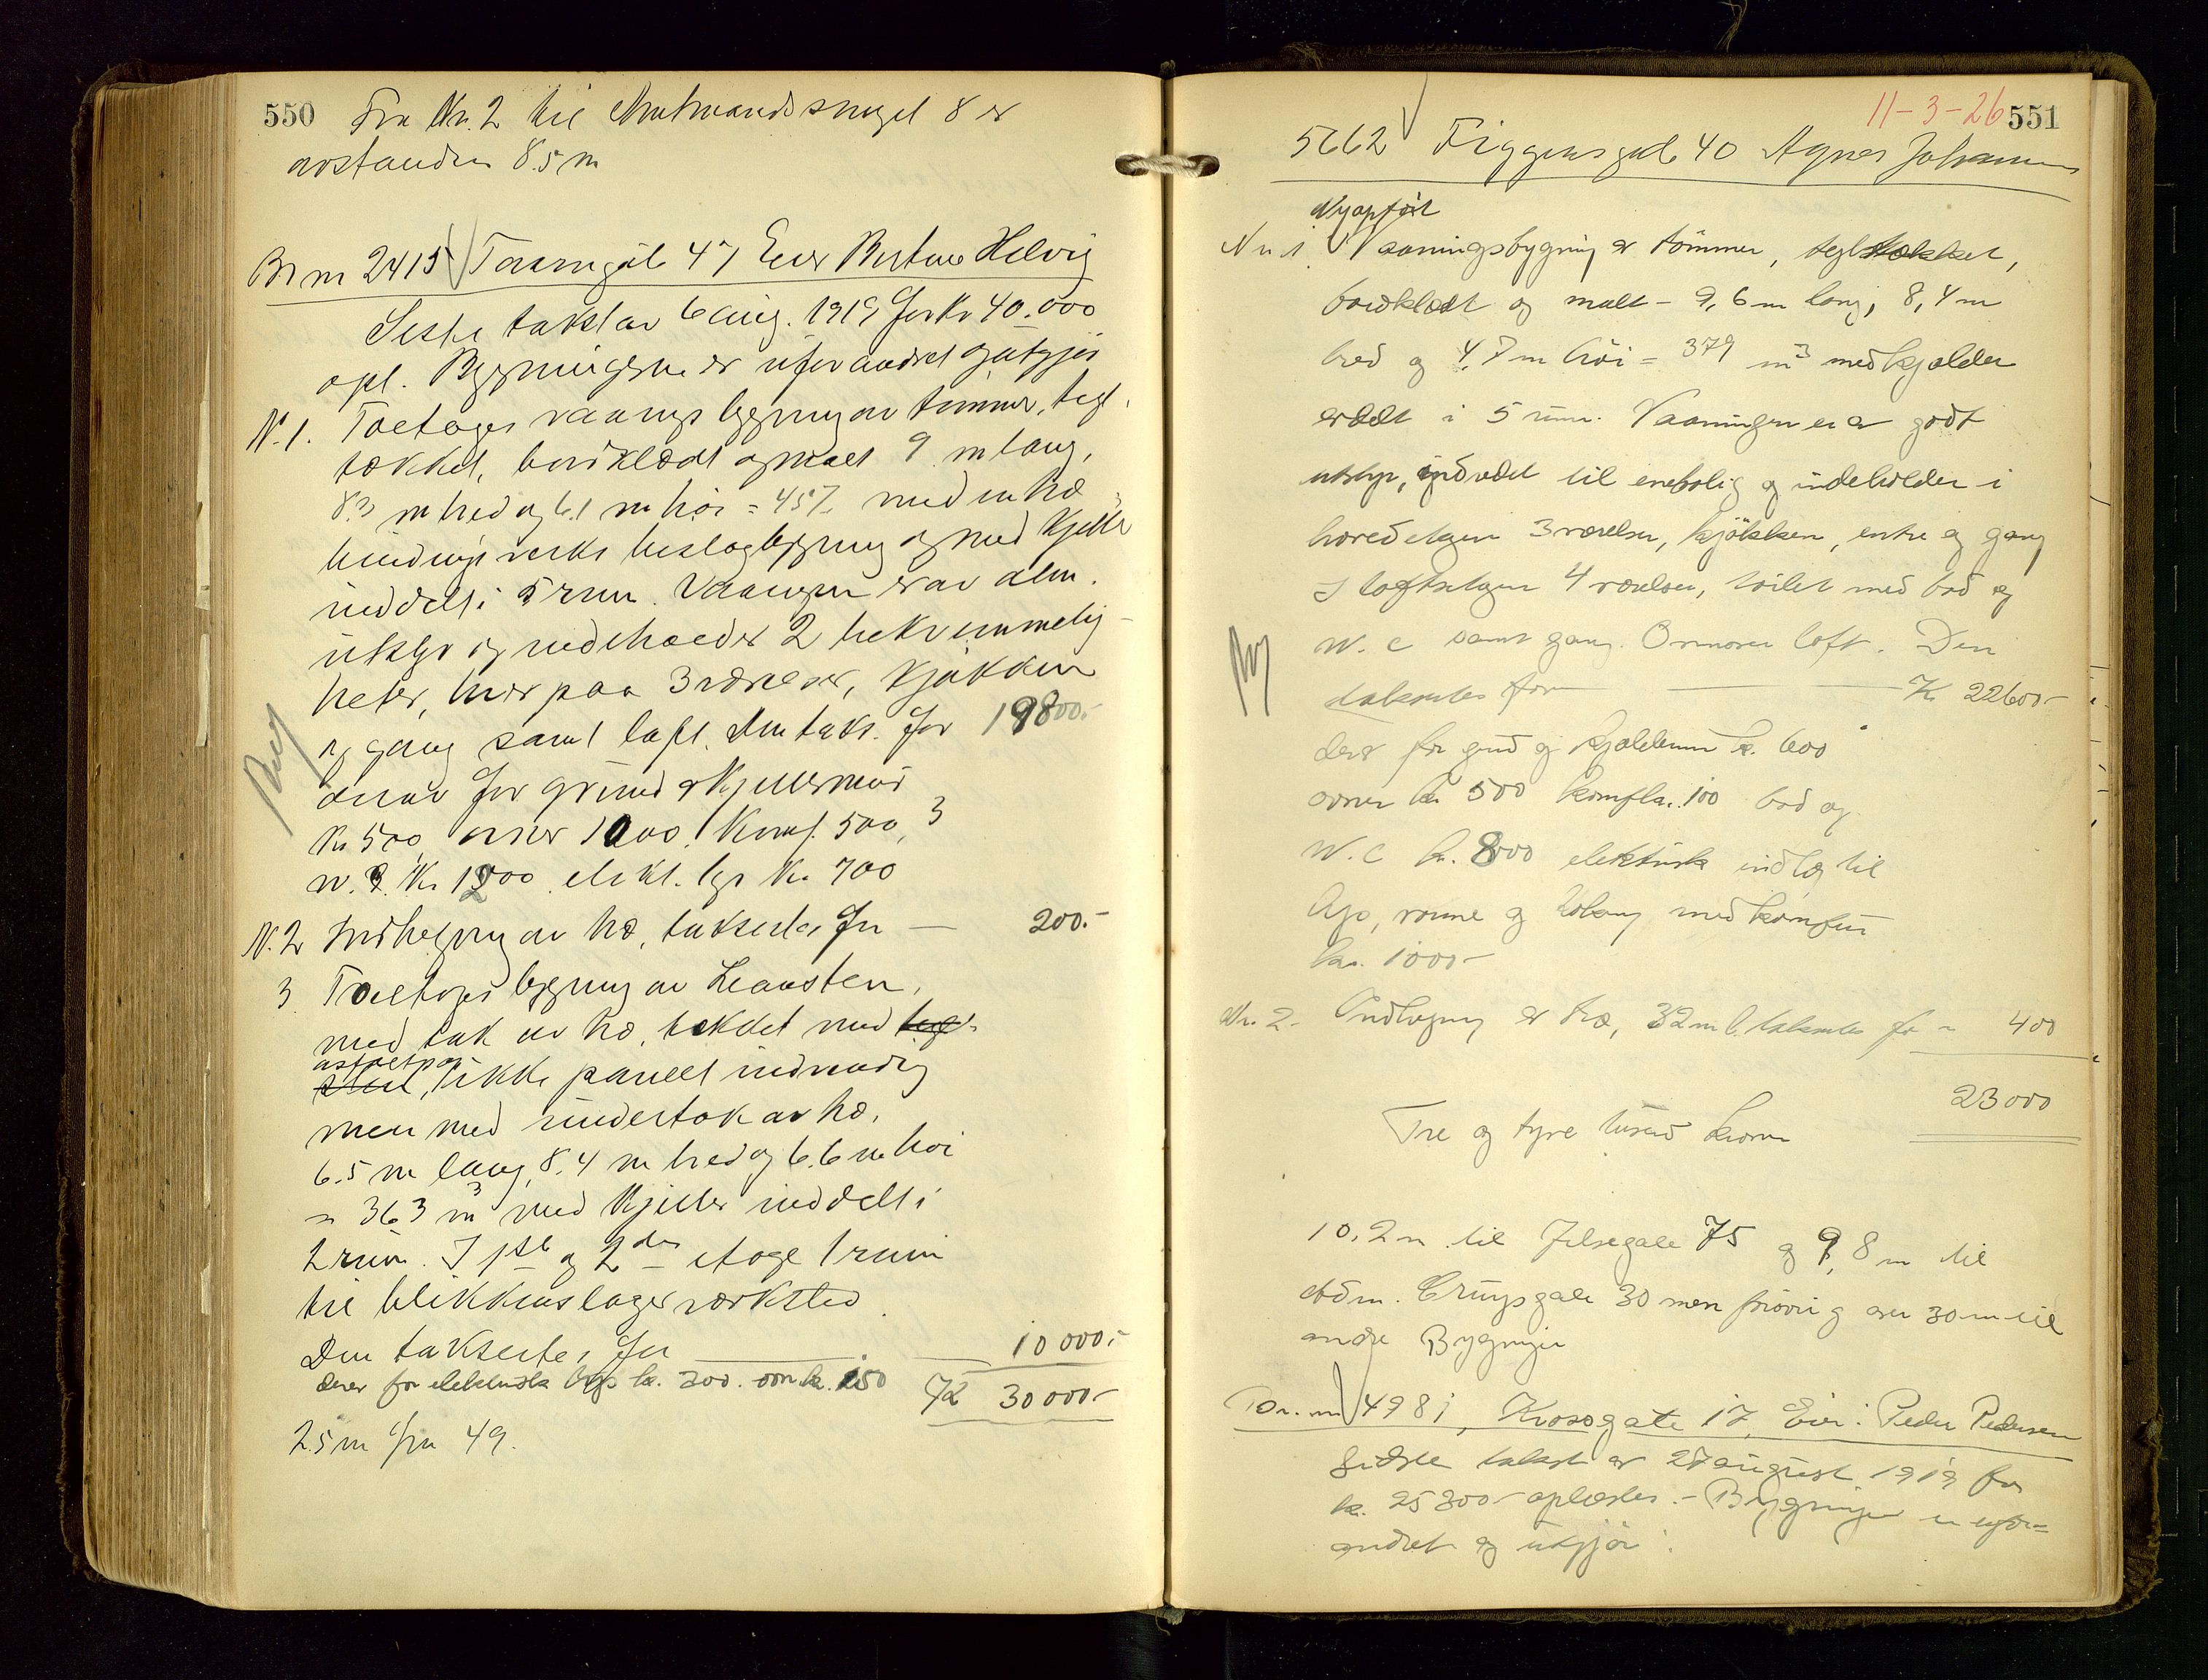 550 Fra Nr. 2 til Amtmandssmuget 8 er
avstanden 8.5 m
Br nr 2415 Taarngate 47 Eier Helvig
Siste takst av 6 aug. 1919 for Kr 40.000
opl. Bygningene er uforandret og utgjør
N. 1. Toetages vaaningsbygning av tømmer, tegl-
tækket, bordklædt og malt 9 m lang,
8.3 m bred og 6.1 m høi = 457 med en træ
bindings verks beslagbygning og med kjelder
inddelt i 5 rum. Vaaningen er av alm.
utstyr og indeholder 2 bekvemmelig-
heter, hver paa 3 værelser, kjøkken
og gang samt loft. Den takst. for 19800.-
derav for grund & kjellermur
Kr 500 ovner 1000. Komf. 500, 3
w.c. Kr 1200 elekt. lys Kr 700
N. 2 Indhegning av træ, takseres for — 200.-
3 Toetages bygning av Leamsten,
med tak av træ, tækket med tegl-
asfaltpap
sten, ikke panelt indvendig
men med undertak av træ.
6.5 m lang, 8.4 m bred og 6.6 m høi
= 363 m³ med kjeller inddelt i
2 rum. I 1ste og 2den etage 1 rum
til blikkenslagerværksted.
Den takseres for — 10000.-
derav for elektrisk lys kr. 300. ovn kr. 150 Kr 30000.-
2.5 m fra 49.
11-3-26 551
5662 Figgensgate 40 Agnes Johannesen
Nyopført
Nr. 1. Vaaningsbygning av tømmer, tegltækket,
bordklædt og malt - 9,6 m lang, 8,4 m
bred og 4,7 m høi = 379 m³ med kjælder
inddelt i 5 rum. Vaaningen er av godt
utstyr, indredet til enebolig og indeholder i
hovedetagen 3 værelser, kjøkken, entre og gang
I loftsetagen 4 værelser, toilet med bad og
W.C samt gang. Ovenover loft. Den
takseres for — Kr 22600-
derav for grund og kjældermur kr. 600
ovner kr 500 komfkr. 100 bad og
W.C kr. 8000 elektrisk indlæg til
lys, varme og kokning med komfur
kr. 1000-
Nr. 2- Indhegning av træ, 32 m l. takseres for - 400
23000
Tre og tyve tusend kroner
10,2 m til Jelsegate 75 og 9,8 m til
Adm. Cruysgate 30 men forøvrig over 30 m til
andre Bygninger
Br. nr 498 i, Krossgate 17, Eier: Peder Pedersen
Sidste takst av 27 august 1919 for
kr. 25300- oplæstes. - Bygningen er ufor=
andret og utgjør: